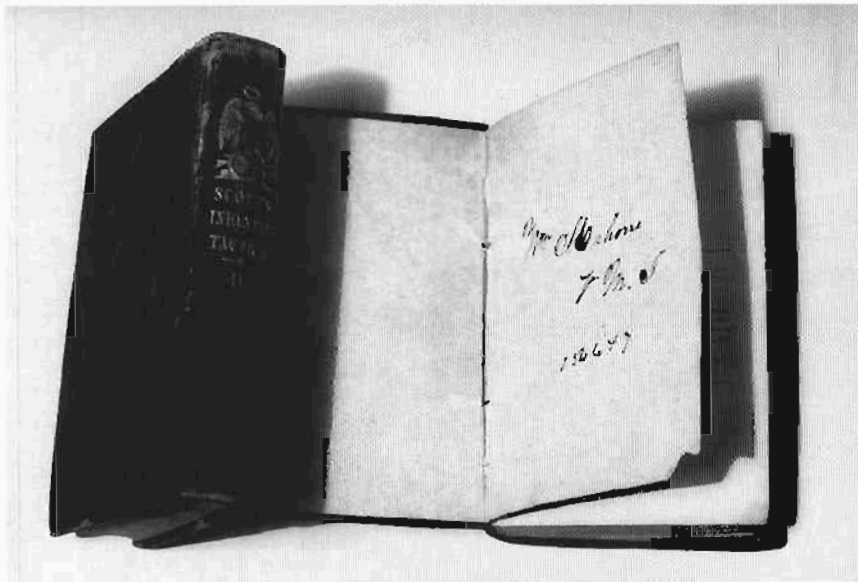 SCOTT'S
INFANTRY
TACTICS
II
Wm Mahone
V. M. I